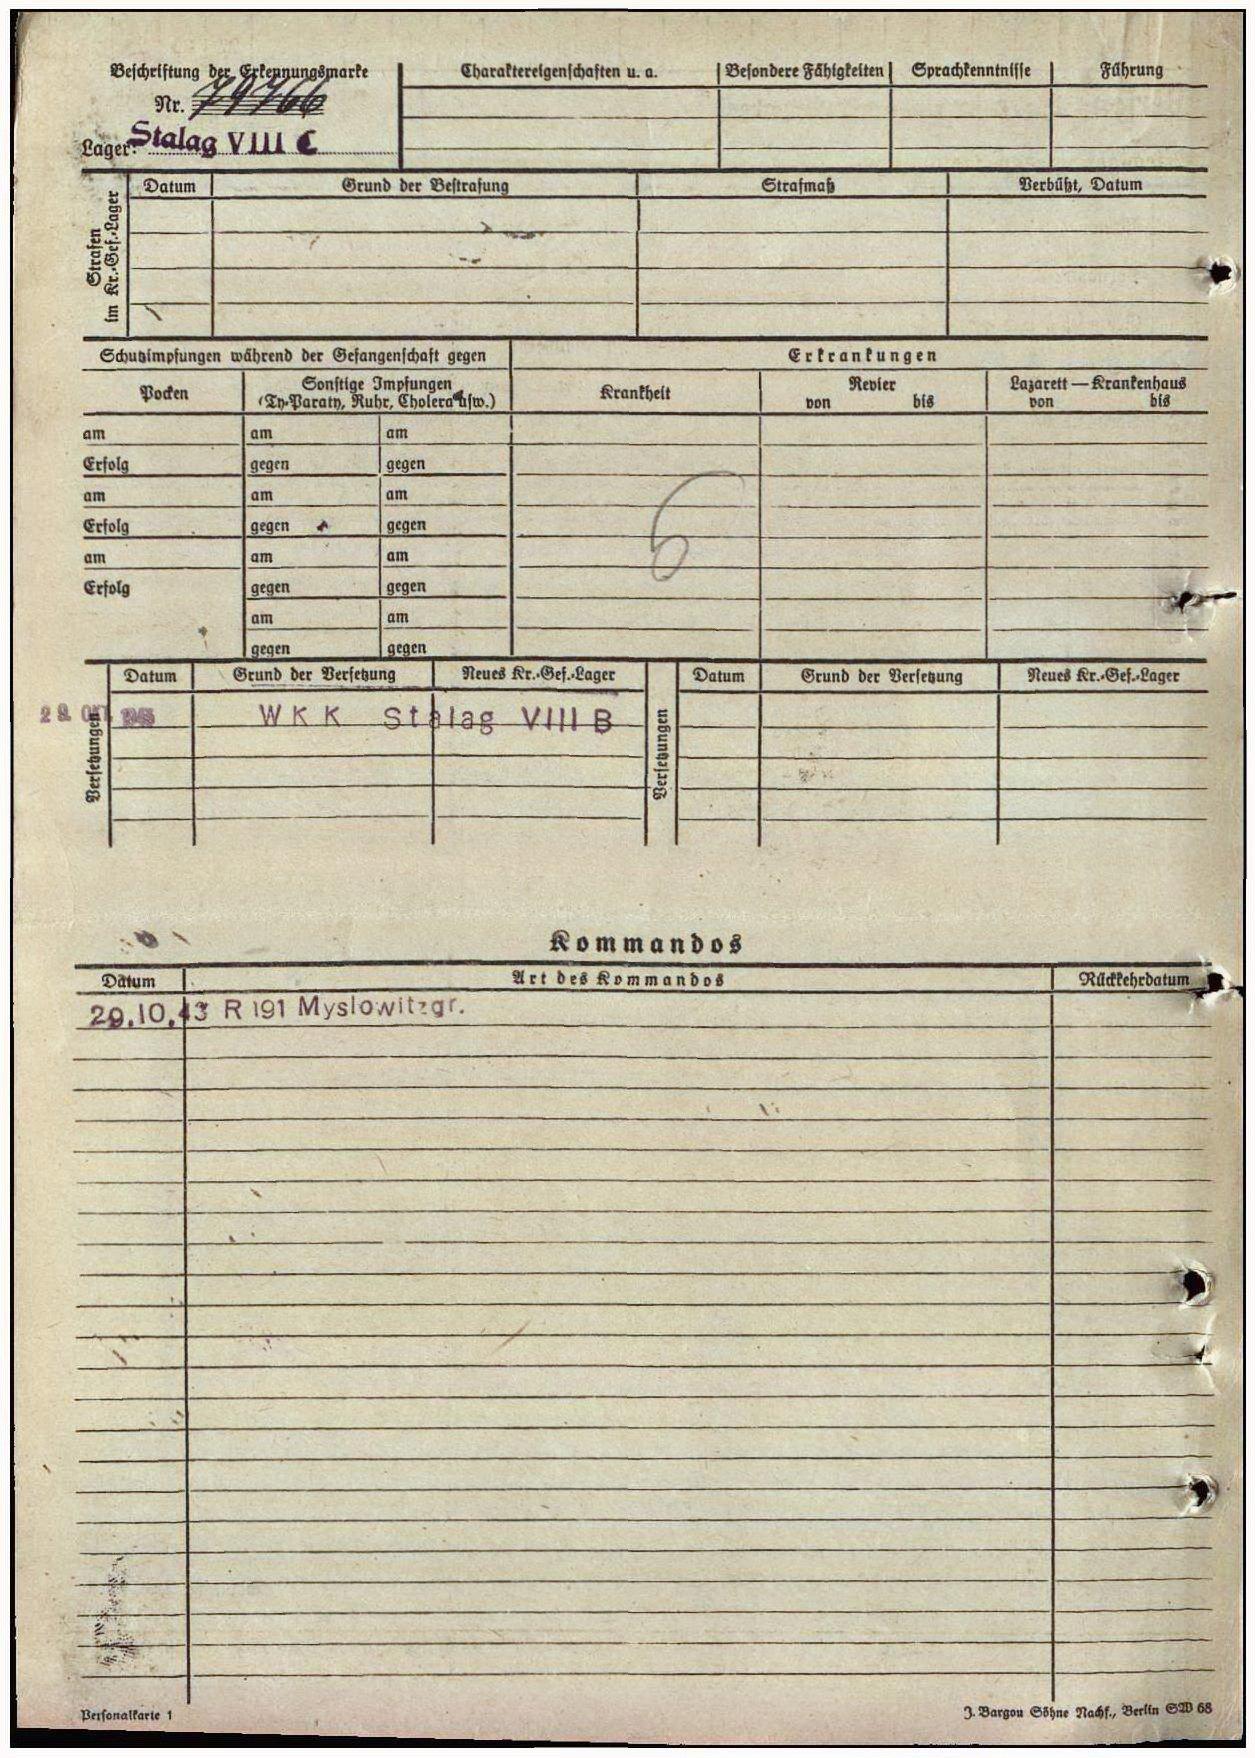 Beschriftung der Erkennungsmarke
Nr. 79766
Lager: Stalag VIII C
Charaktereigenschaften u. a.
Besondere Fähigkeiten
Sprachkenntnisse
Führung
Strafen
im Kr.-Gef.-Lager
Datum
Grund der Bestrafung
Strafmaß
Verbüßt, Datum
Schutzimpfungen während der Gefangenschaft gegen
Erkrankungen
Pocken
Sonstige Impfungen
(Ty-Paraty, Ruhr, Cholera usw.)
Krankheit
Revier
von bis
Lazarett — Krankenhaus
von bis
am am am
Erfolg gegen gegen
am am am
Erfolg gegen gegen
am am am
Erfolg gegen gegen
am am
gegen gegen
6
Versetzungen
Datum
Grund der Versetzung
Neues Kr.-Gef.-Lager
29. OKT. 1943 WKK Stalag VIII B
Versetzungen
Datum
Grund der Versetzung
Neues Kr.-Gef.-Lager
Kommandos
Datum
Art des Kommandos
Rückkehrdatum
29.10.43 R 191 Myslowitzgr.
Personalkarte 1
J. Bargou Söhne Nachf., Berlin SW 68